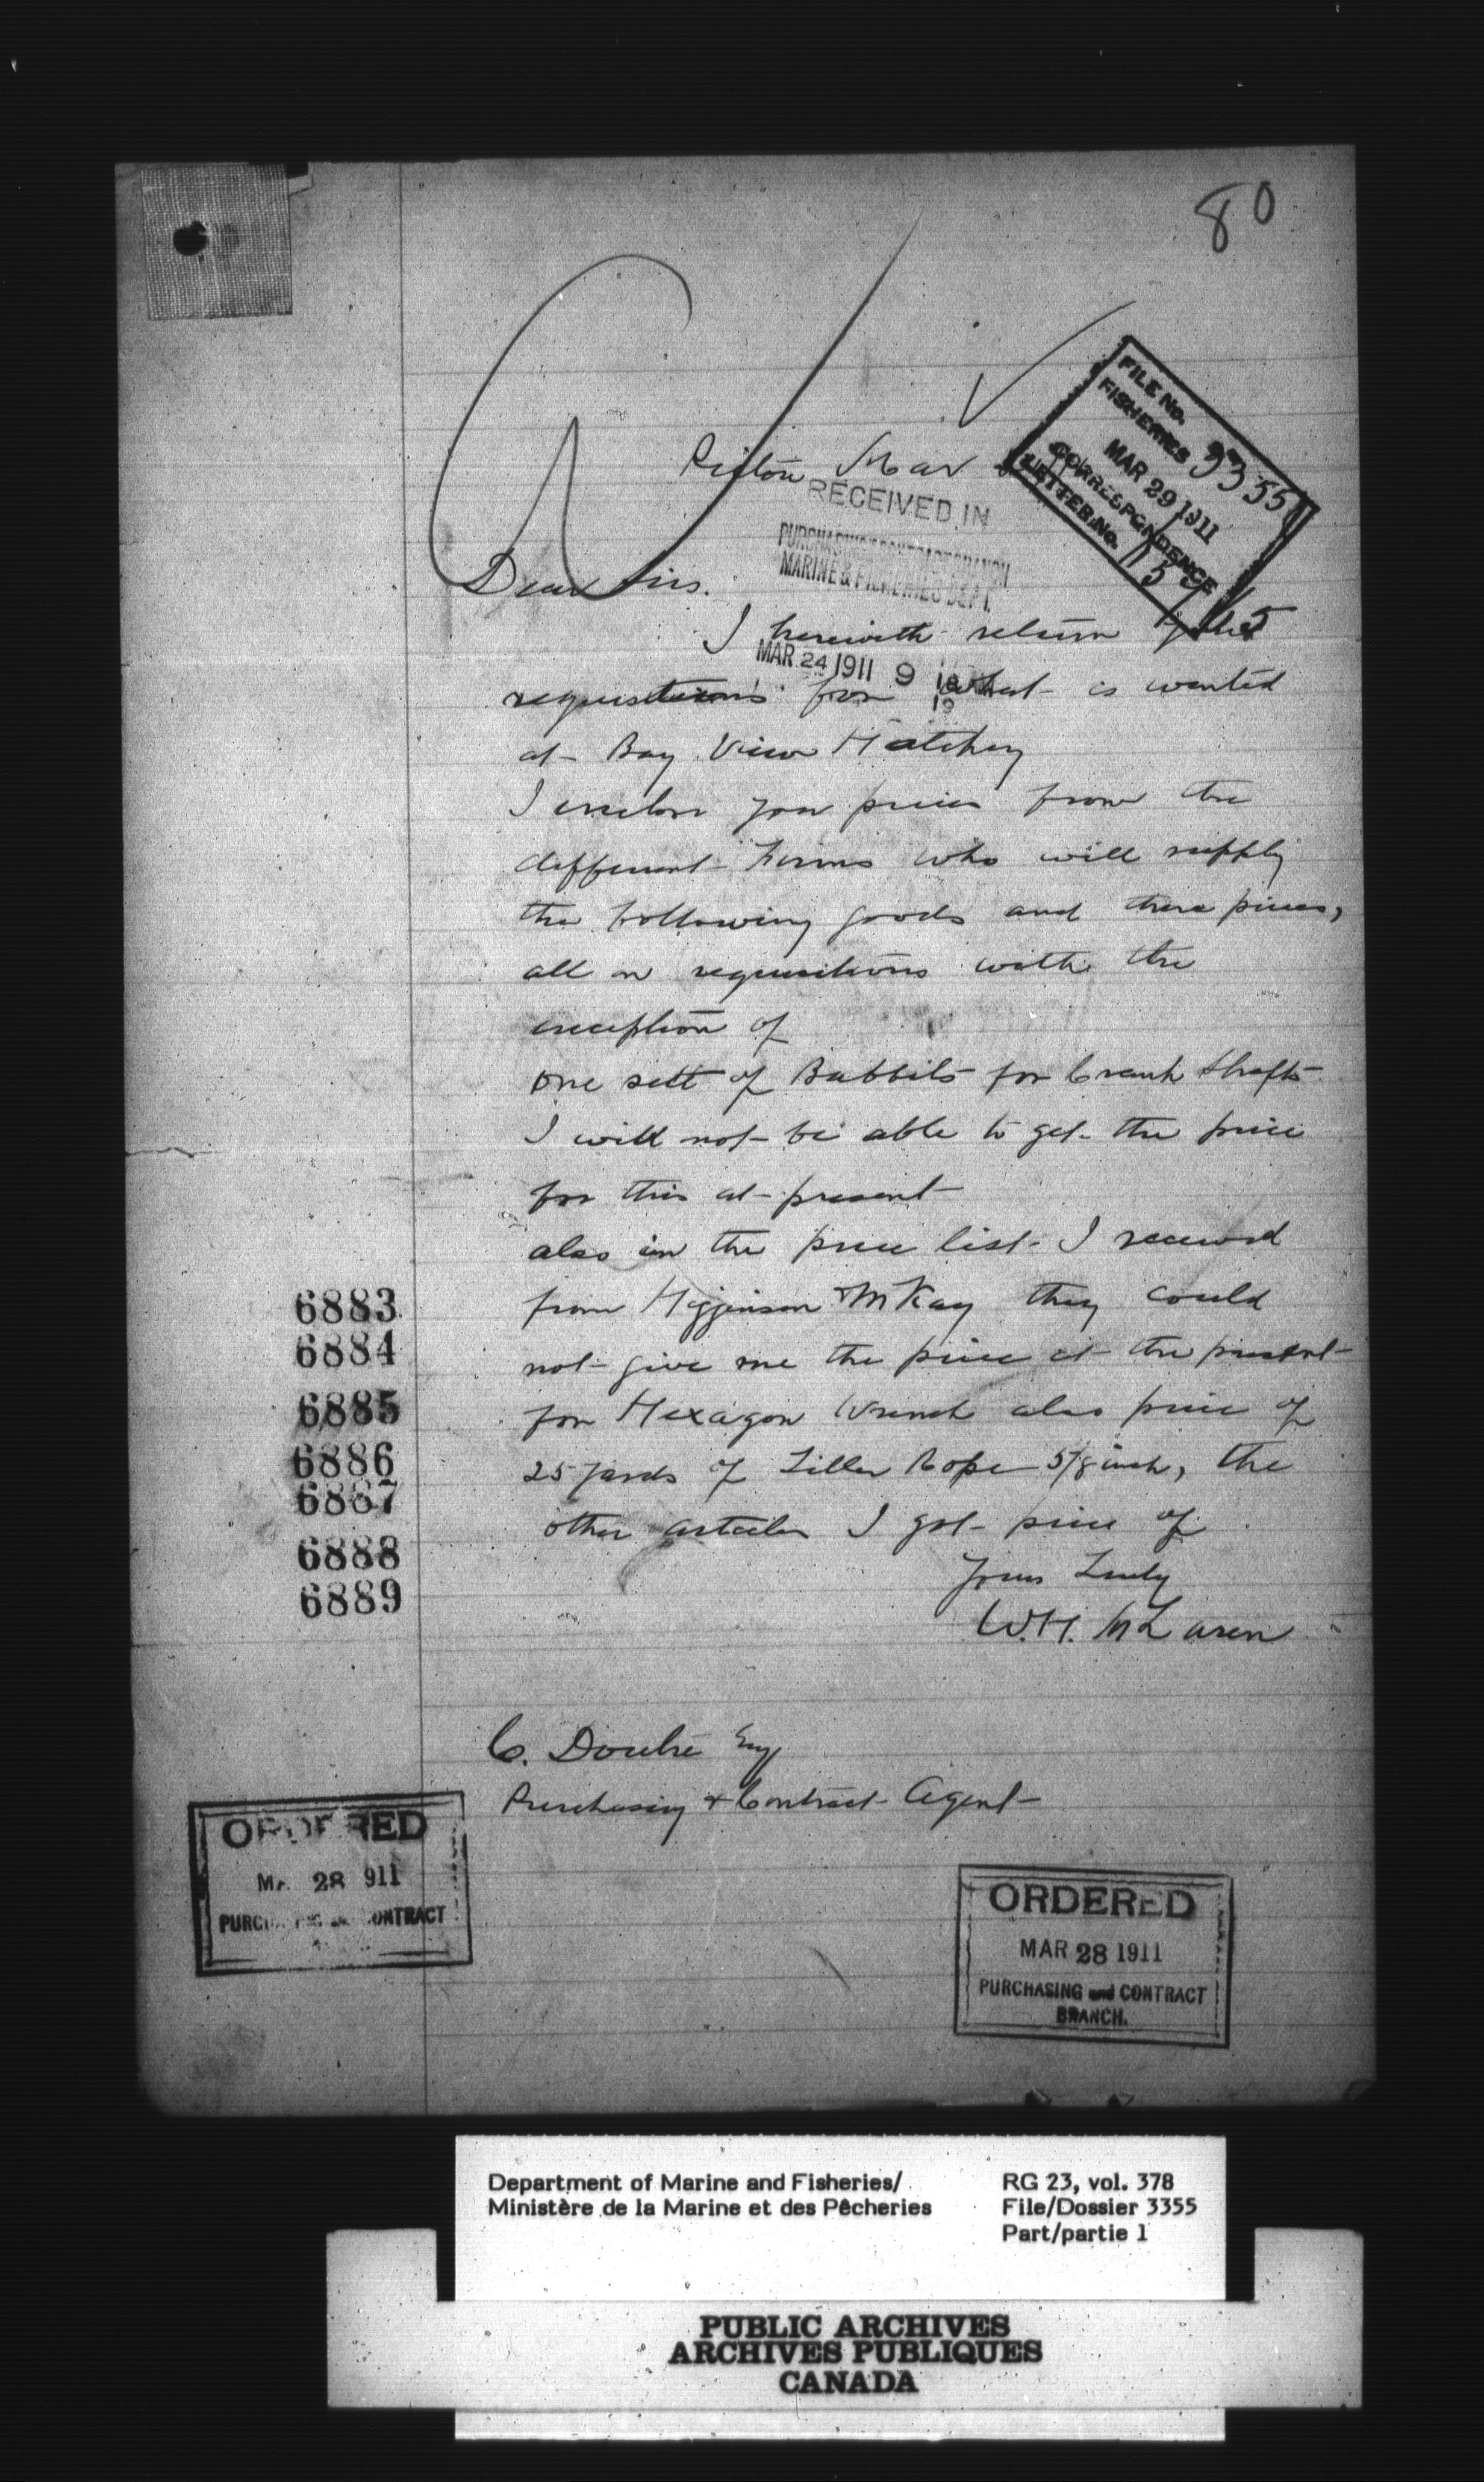 80
Pictou Mar
FILE No.
FISHERIES 3355
MAR 29 1911
CORRESPONDENCE
LETTER No.
RECEIVED IN
PURCHASING & CONTRACT BRANCH
MARINE & FISHERIES DEPT.
MAR 24 1911 9
Dear Sirs.
I herewith return you the
requisitions for what is wanted
at Bay View Hatchey
I enclose you prices from the
different Firms who will supply
the following goods and there prices,
all on requisitions with the
exception of
One sett of Babbits for Crank Shafts
I will not be able to get the price
for this at present
also in the price list I received
from Higginson & McKay they could
not give me the price at the present
for Hexagon Wrench also price of
25 yards of Tiller Rope 5/8 inch, the
other articles I got price of
Yours Truly
W.H. McLaren
6883
6884
6885
6886
6887
6888
6889
C. Doutre Esq
Purchasing & Contract Agent
ORDERED
MAR 28 1911
PURCHASING and CONTRACT
ORDERED
MAR 28 1911
PURCHASING and CONTRACT
BRANCH.
Department of Marine and Fisheries/
Ministère de la Marine et des Pêcheries
RG 23, vol. 378
File/Dossier 3355
Part/partie 1
PUBLIC ARCHIVES
ARCHIVES PUBLIQUES
CANADA